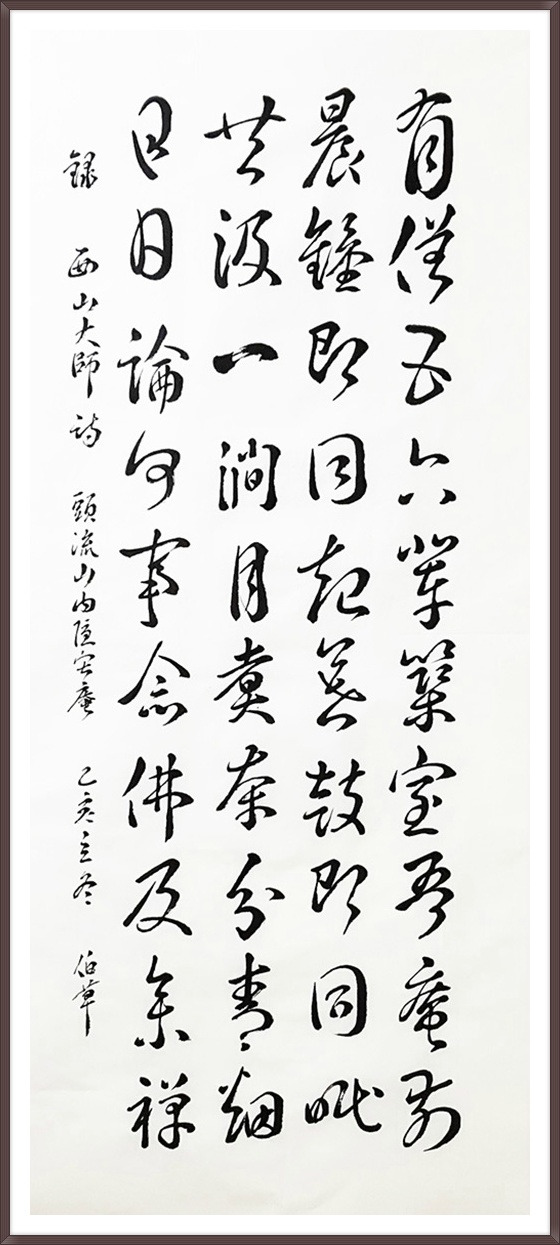 有僧五六輩築室吾庵前
晨鐘即同起暮鼓即同眠
共汲一澗月煮茶分青烟
日日論何事念佛及參禪
録 西山大師詩 頭流山内隱寂庵 己亥立冬 伯草